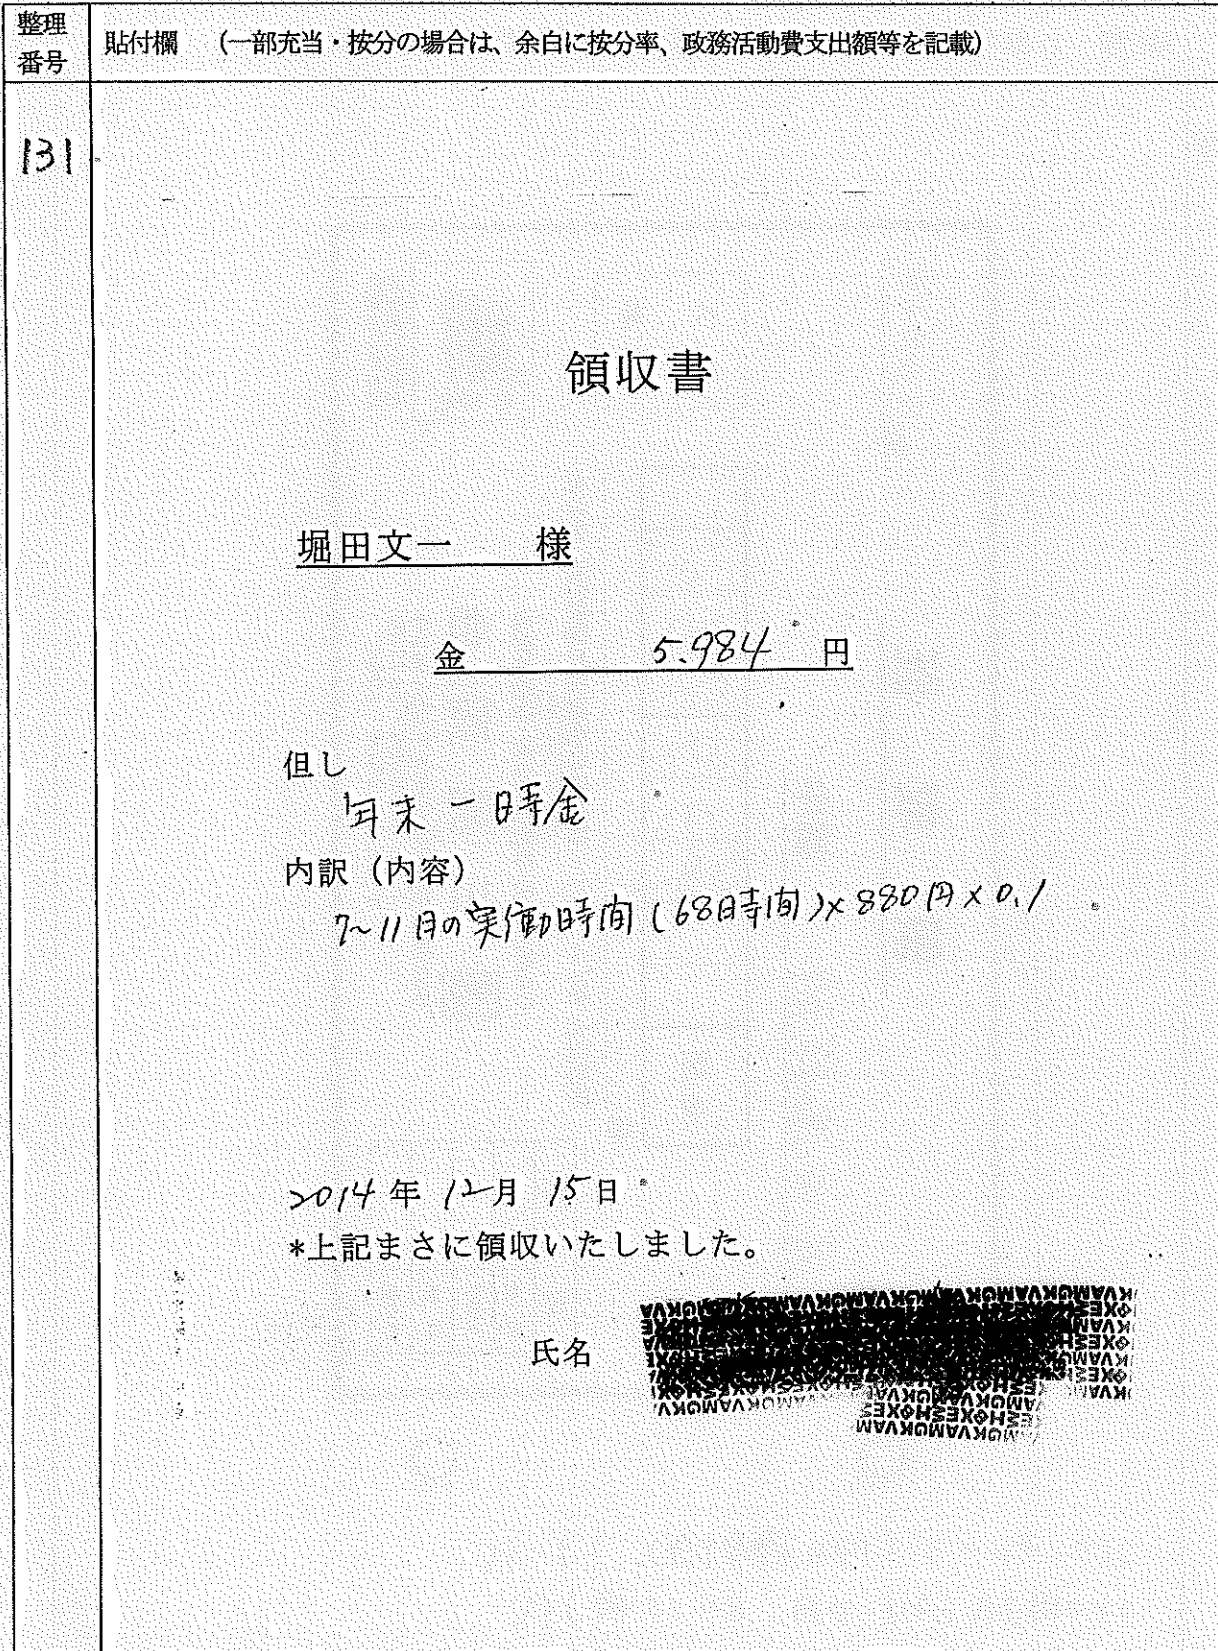 整理
番号
貼付欄 （一部充当・按分の場合は、余白に按分率、政務活動費支出額等を記載）
131
領収書
堀田文一 様
金 5.984 円
但し
年末一時金
内訳（内容）
7~11月の実働時間(68時間)×880円×0.1
2014年 12月 15日
*上記まさに領収いたしました。
氏名